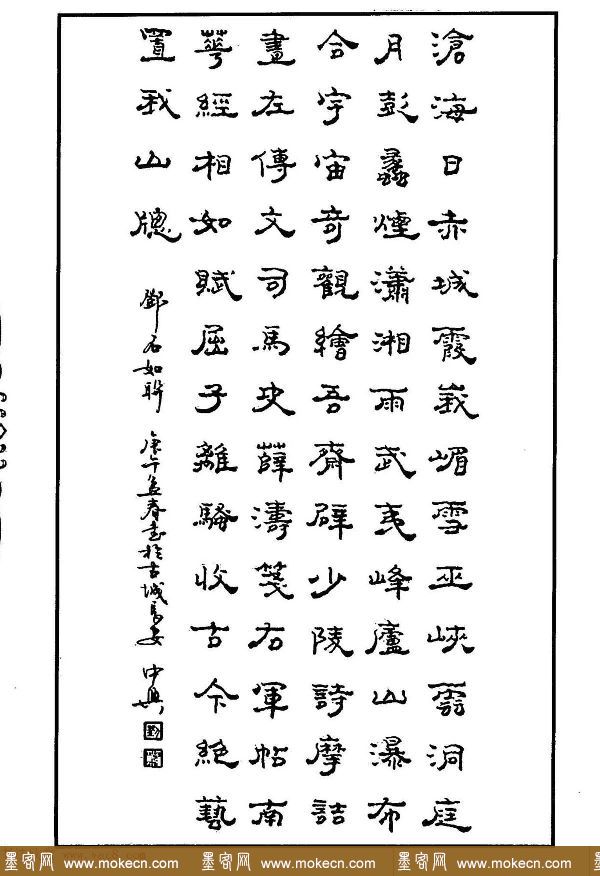 滄海日赤城霞峩嵋雪巫峽雲洞庭
月彭蠡煙瀟湘雨武夷峰廬山瀑布
合宇宙奇觀繪吾齋壁少陵詩摩詰
畫左傳文司馬史薛濤箋右軍帖南
華經相如賦屈子離騷收古今絶藝
置我山牕
鄧石如聯 庚午孟春書於古城長安 中興
墨客网 www.mokecn.com 墨客网 www.mokecn.com 墨客网 www.mokecn.com